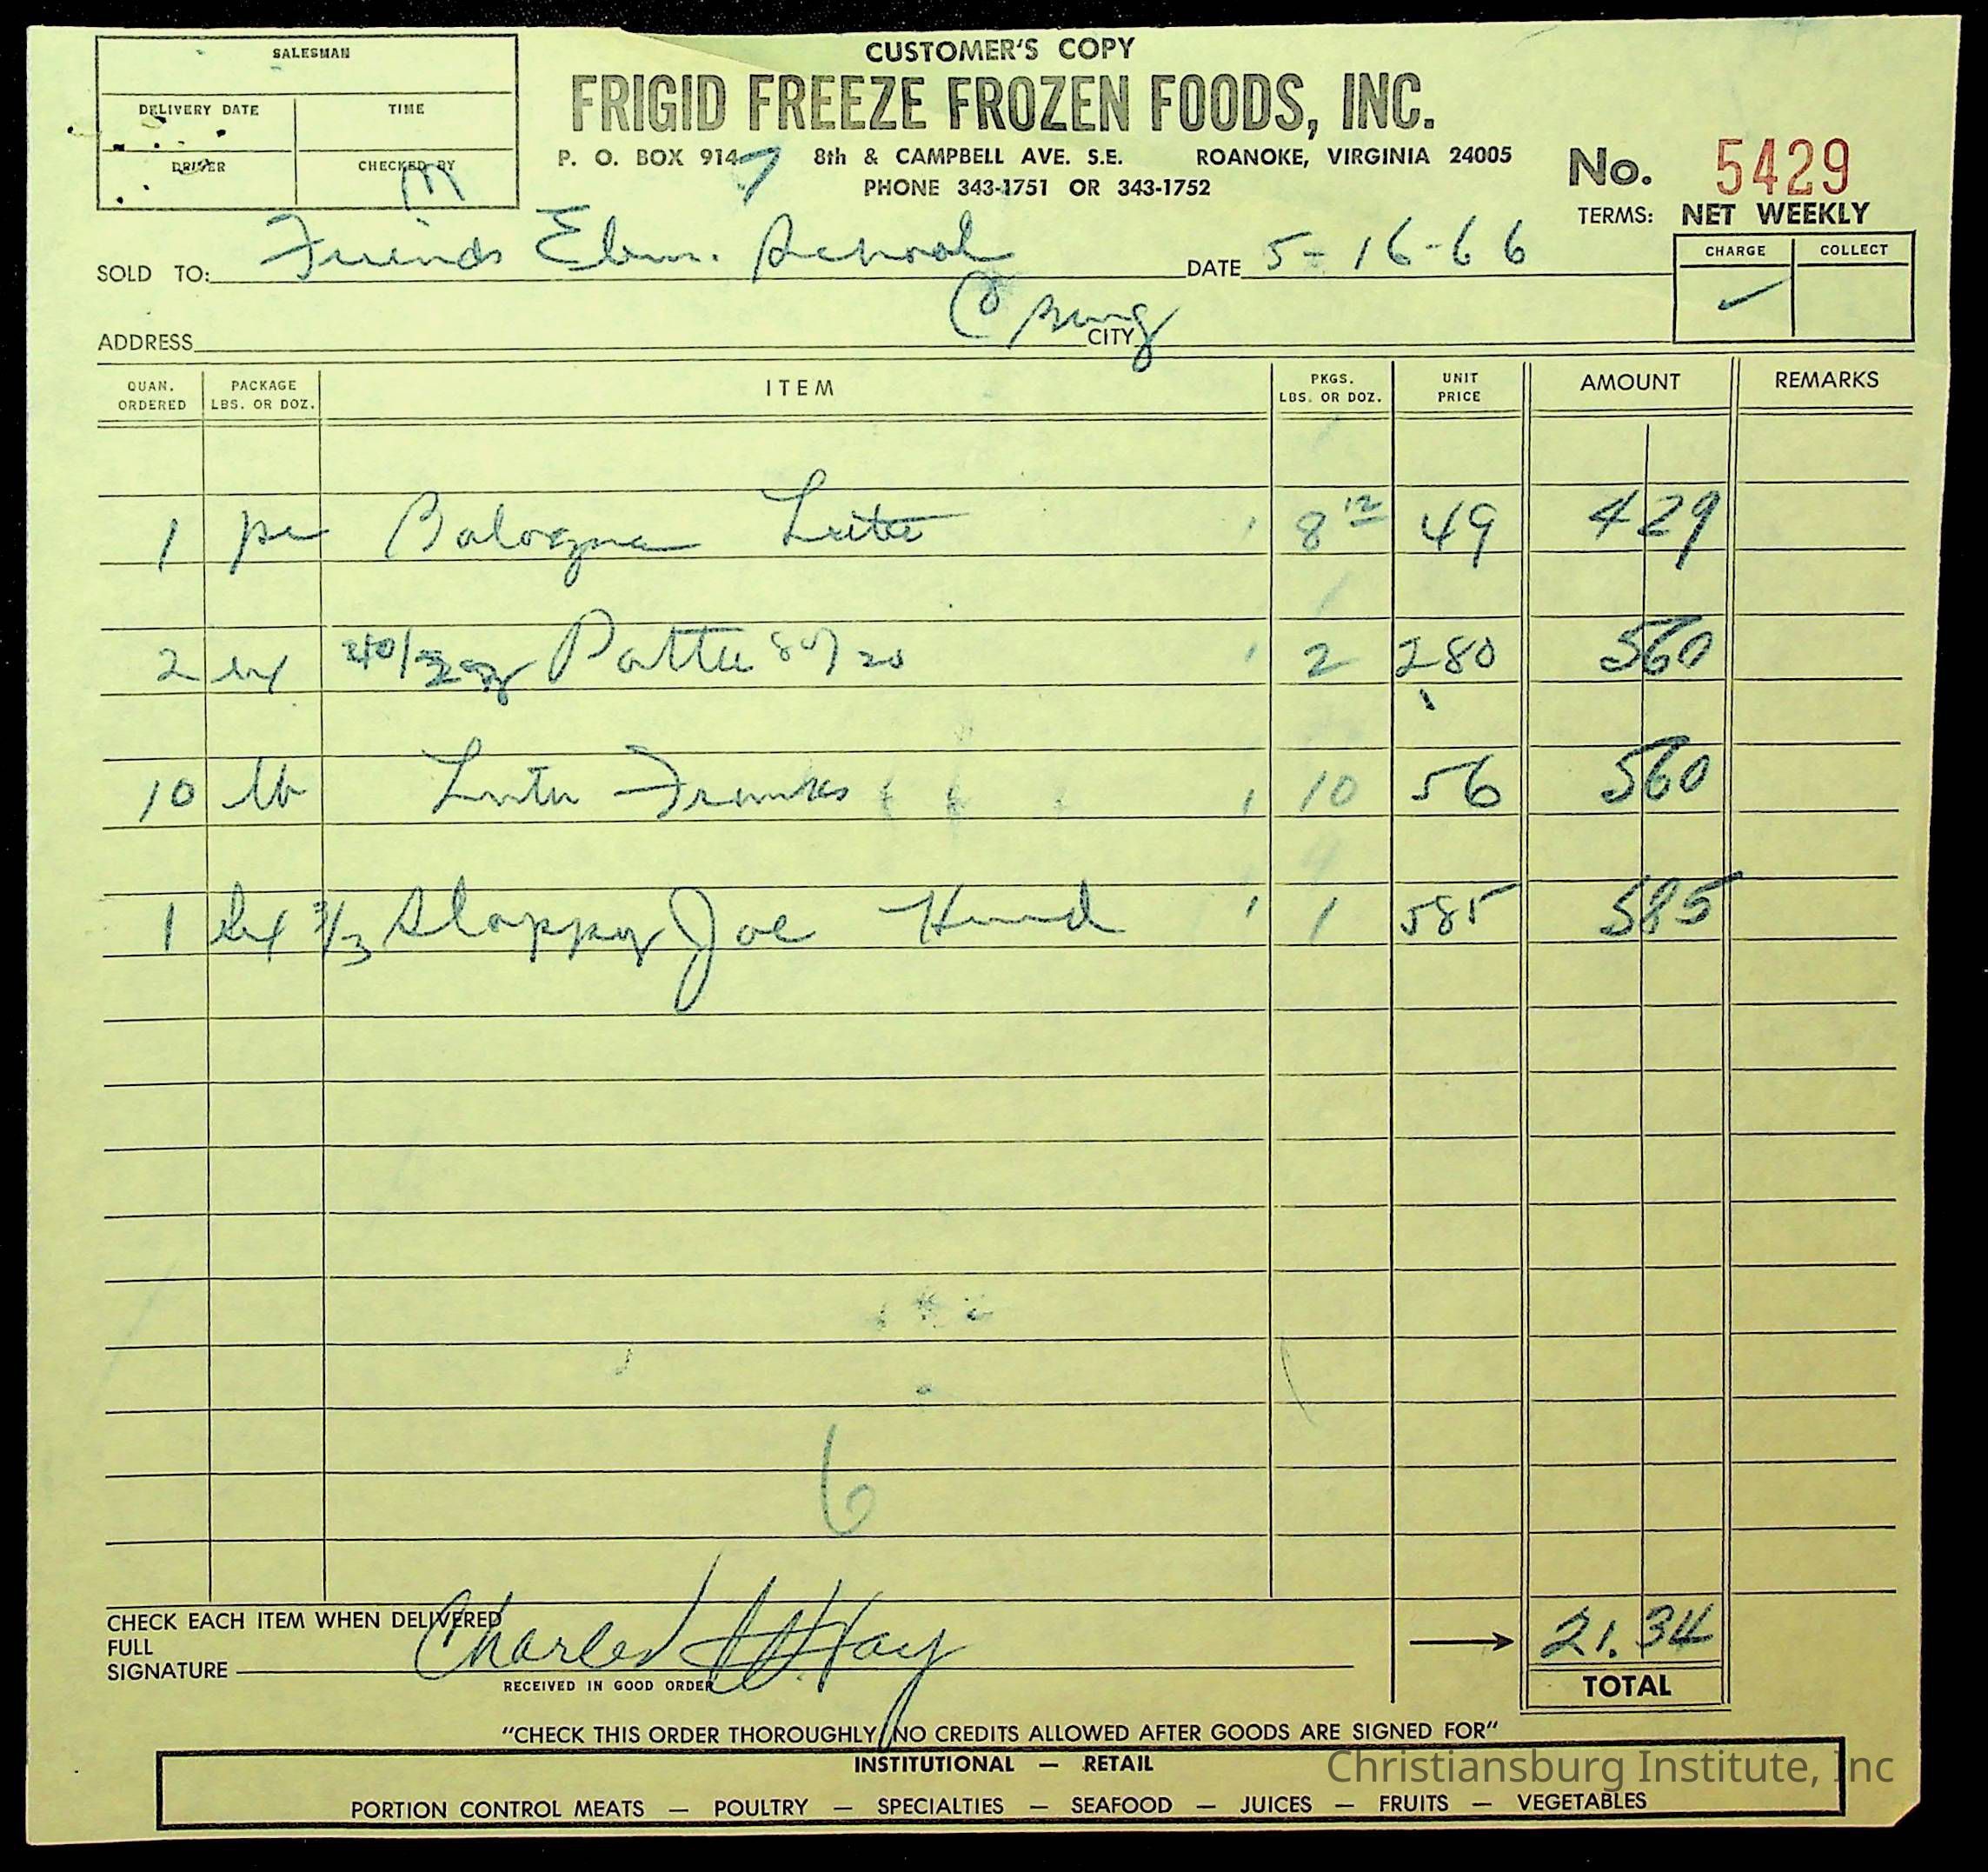 SALESMAN
DELIVERY DATE TIME
DRIVER CHECKED BY
CUSTOMER'S COPY
FRIGID FREEZE FROZEN FOODS, INC.
P. O. BOX 914 7 8th & CAMPBELL AVE. S.E. ROANOKE, VIRGINIA 24005
PHONE 343-1751 OR 343-1752
No. 5429
TERMS: NET WEEKLY
CHARGE COLLECT
✓
SOLD TO: Friends Elem. School DATE 5-16-66
ADDRESS CITY C Burg
QUAN. ORDERED PACKAGE LBS. OR DOZ. ITEM PKGS. LBS. OR DOZ. UNIT PRICE AMOUNT REMARKS
1 pc Bologna 8 12 49 4 29
2 bx Pattie 80/20 2 280 5 60
10 lb Franks 10 56 5 60
1 bx 3/3 Sloppy Joe 1 585 5 85
6
CHECK EACH ITEM WHEN DELIVERED
FULL
SIGNATURE Charles W. Hay
RECEIVED IN GOOD ORDER
21.34
TOTAL
"CHECK THIS ORDER THOROUGHLY, NO CREDITS ALLOWED AFTER GOODS ARE SIGNED FOR"
INSTITUTIONAL — RETAIL
PORTION CONTROL MEATS — POULTRY — SPECIALTIES — SEAFOOD — JUICES — FRUITS — VEGETABLES
Christiansburg Institute, Inc